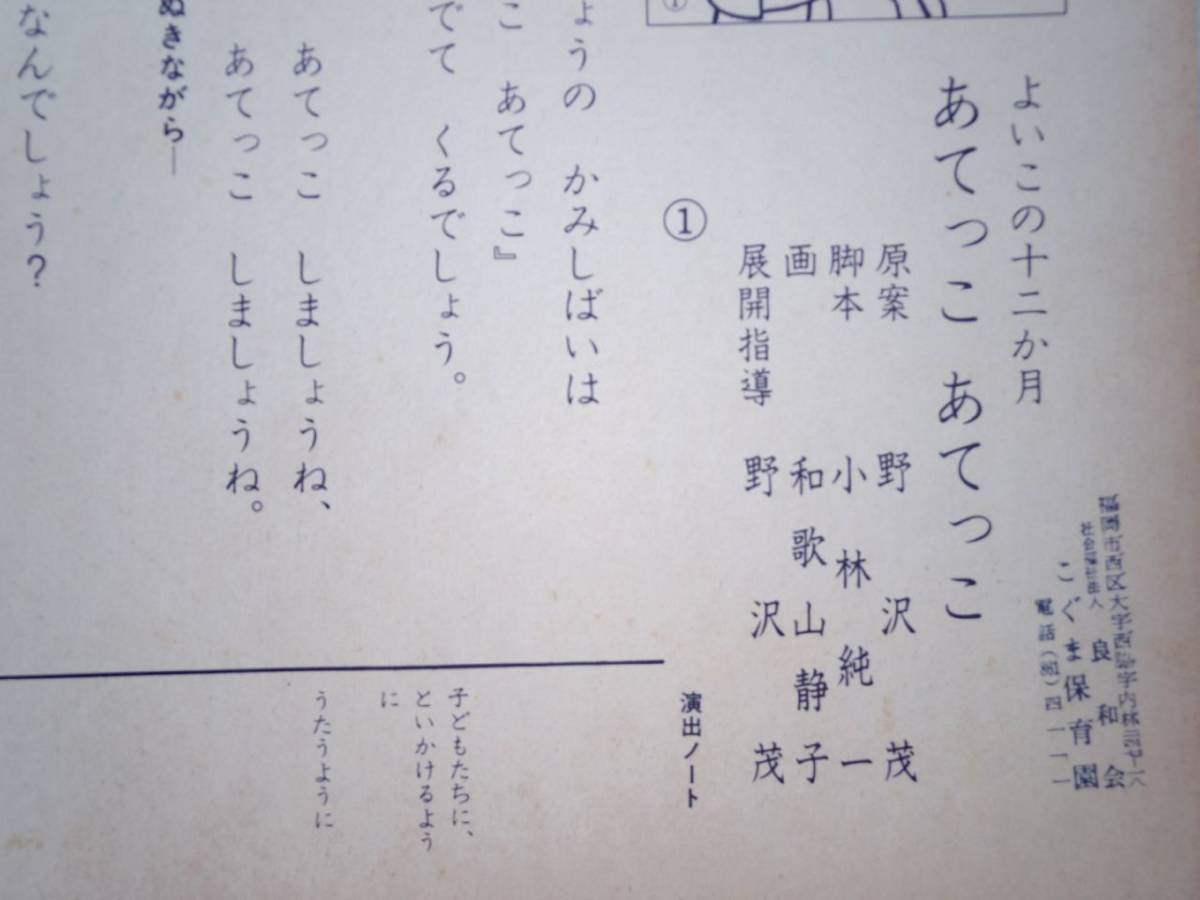 社会福祉法人
良和会
こぐま保育園
よいこの十二か月
あてっこ あてっこ
原案 野沢茂
脚本 小林純一
画 和歌山静子
展開指導 野沢茂
①
ょうの かみしばいは
こ あてっこ』
でて くるでしょう。
あてっこ しましょうね、
あてっこ しましょうね。
ぬきながら―
なんでしょう?
演出ノート
子どもたちに、
といかけるよう
に
うたうように